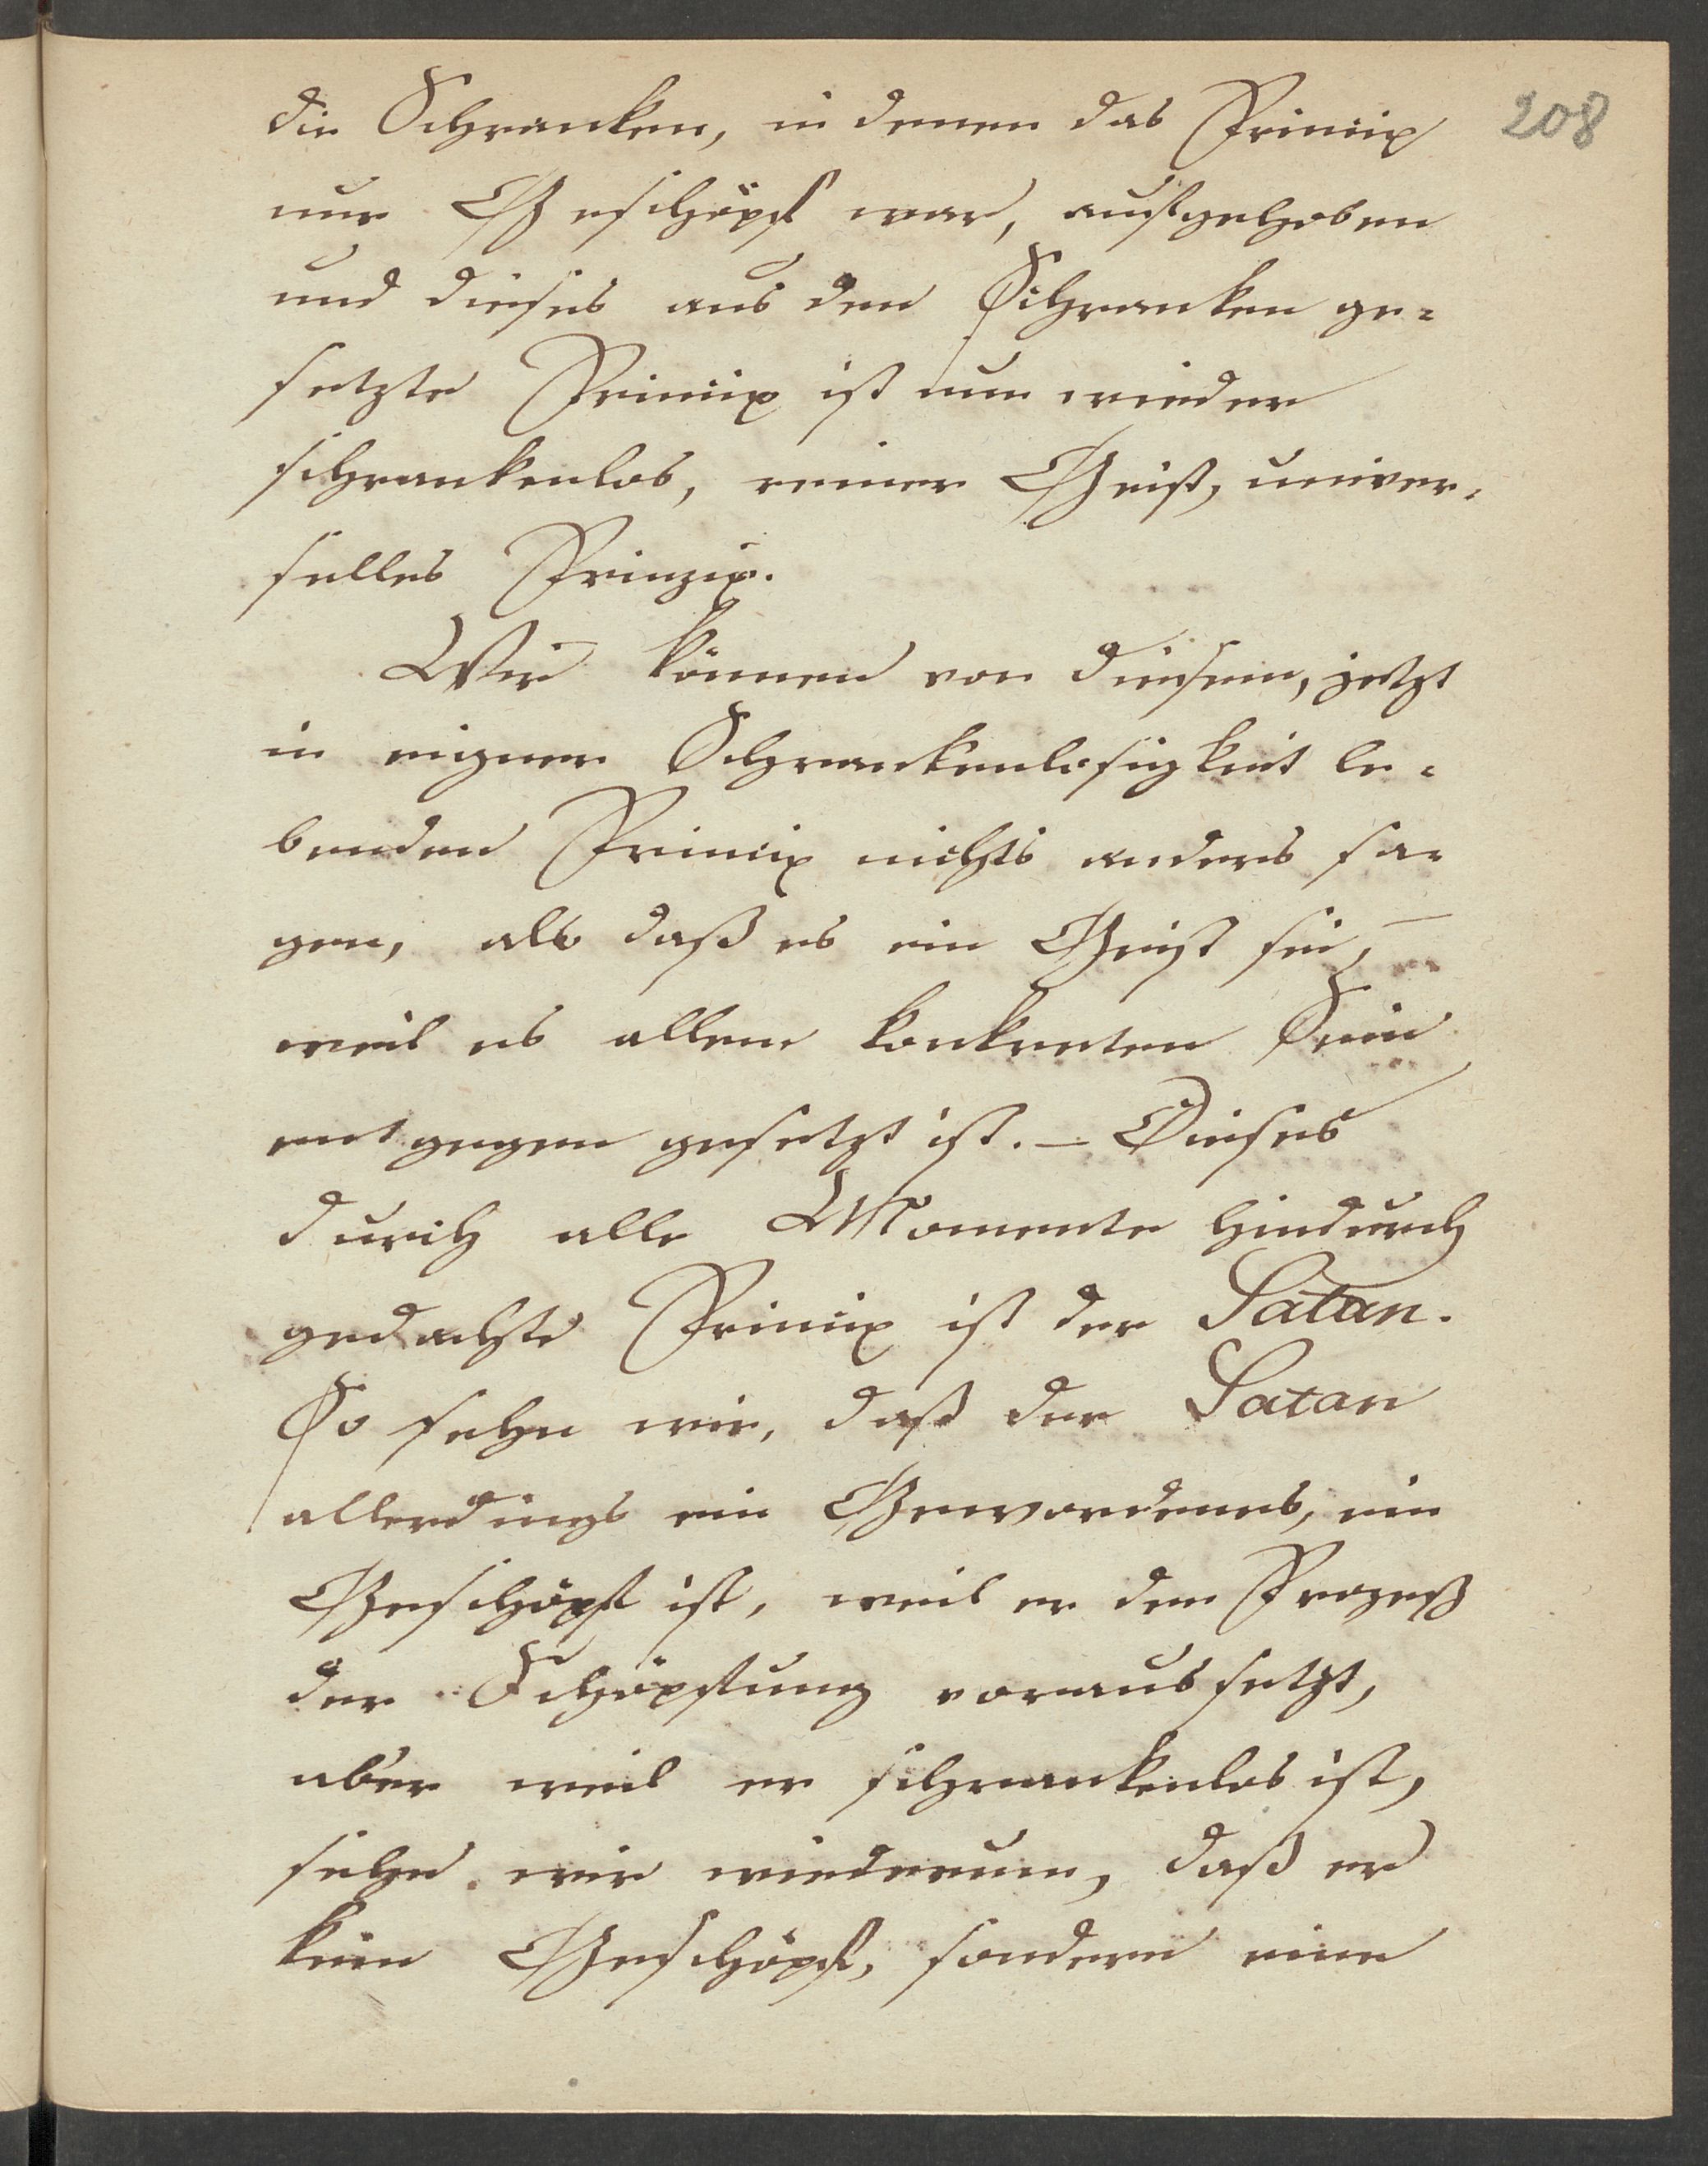 208
die Schranken, in denen das Princip
nur Geschöpf war, aufgehoben
und dieses aus den Schranken ge=
setzte Princip ist nun wieder
schrankenlos, reiner Geist, univer=
selles Prinzip.
Wir können von diesem, jetzt
in eigner Schrankenlosigkeit le=
benden Princip nichts anders sa=
gen, als daß es ein Geist sei,
weil es allem konkreten Sein
entgegen gesetzt ist. – Dieses
durch alle Momente hindurch
gedachte Princip ist der Satan.
So sehn wir, daß der Satan
allerdings ein Gewordenes, ein
Geschöpf ist, weil er den Prozeß
der Schöpfung voraussetzt,
aber weil er schrankenlos ist,
sehn wir wiederum, daß er
kein Geschöpf, sondern eine